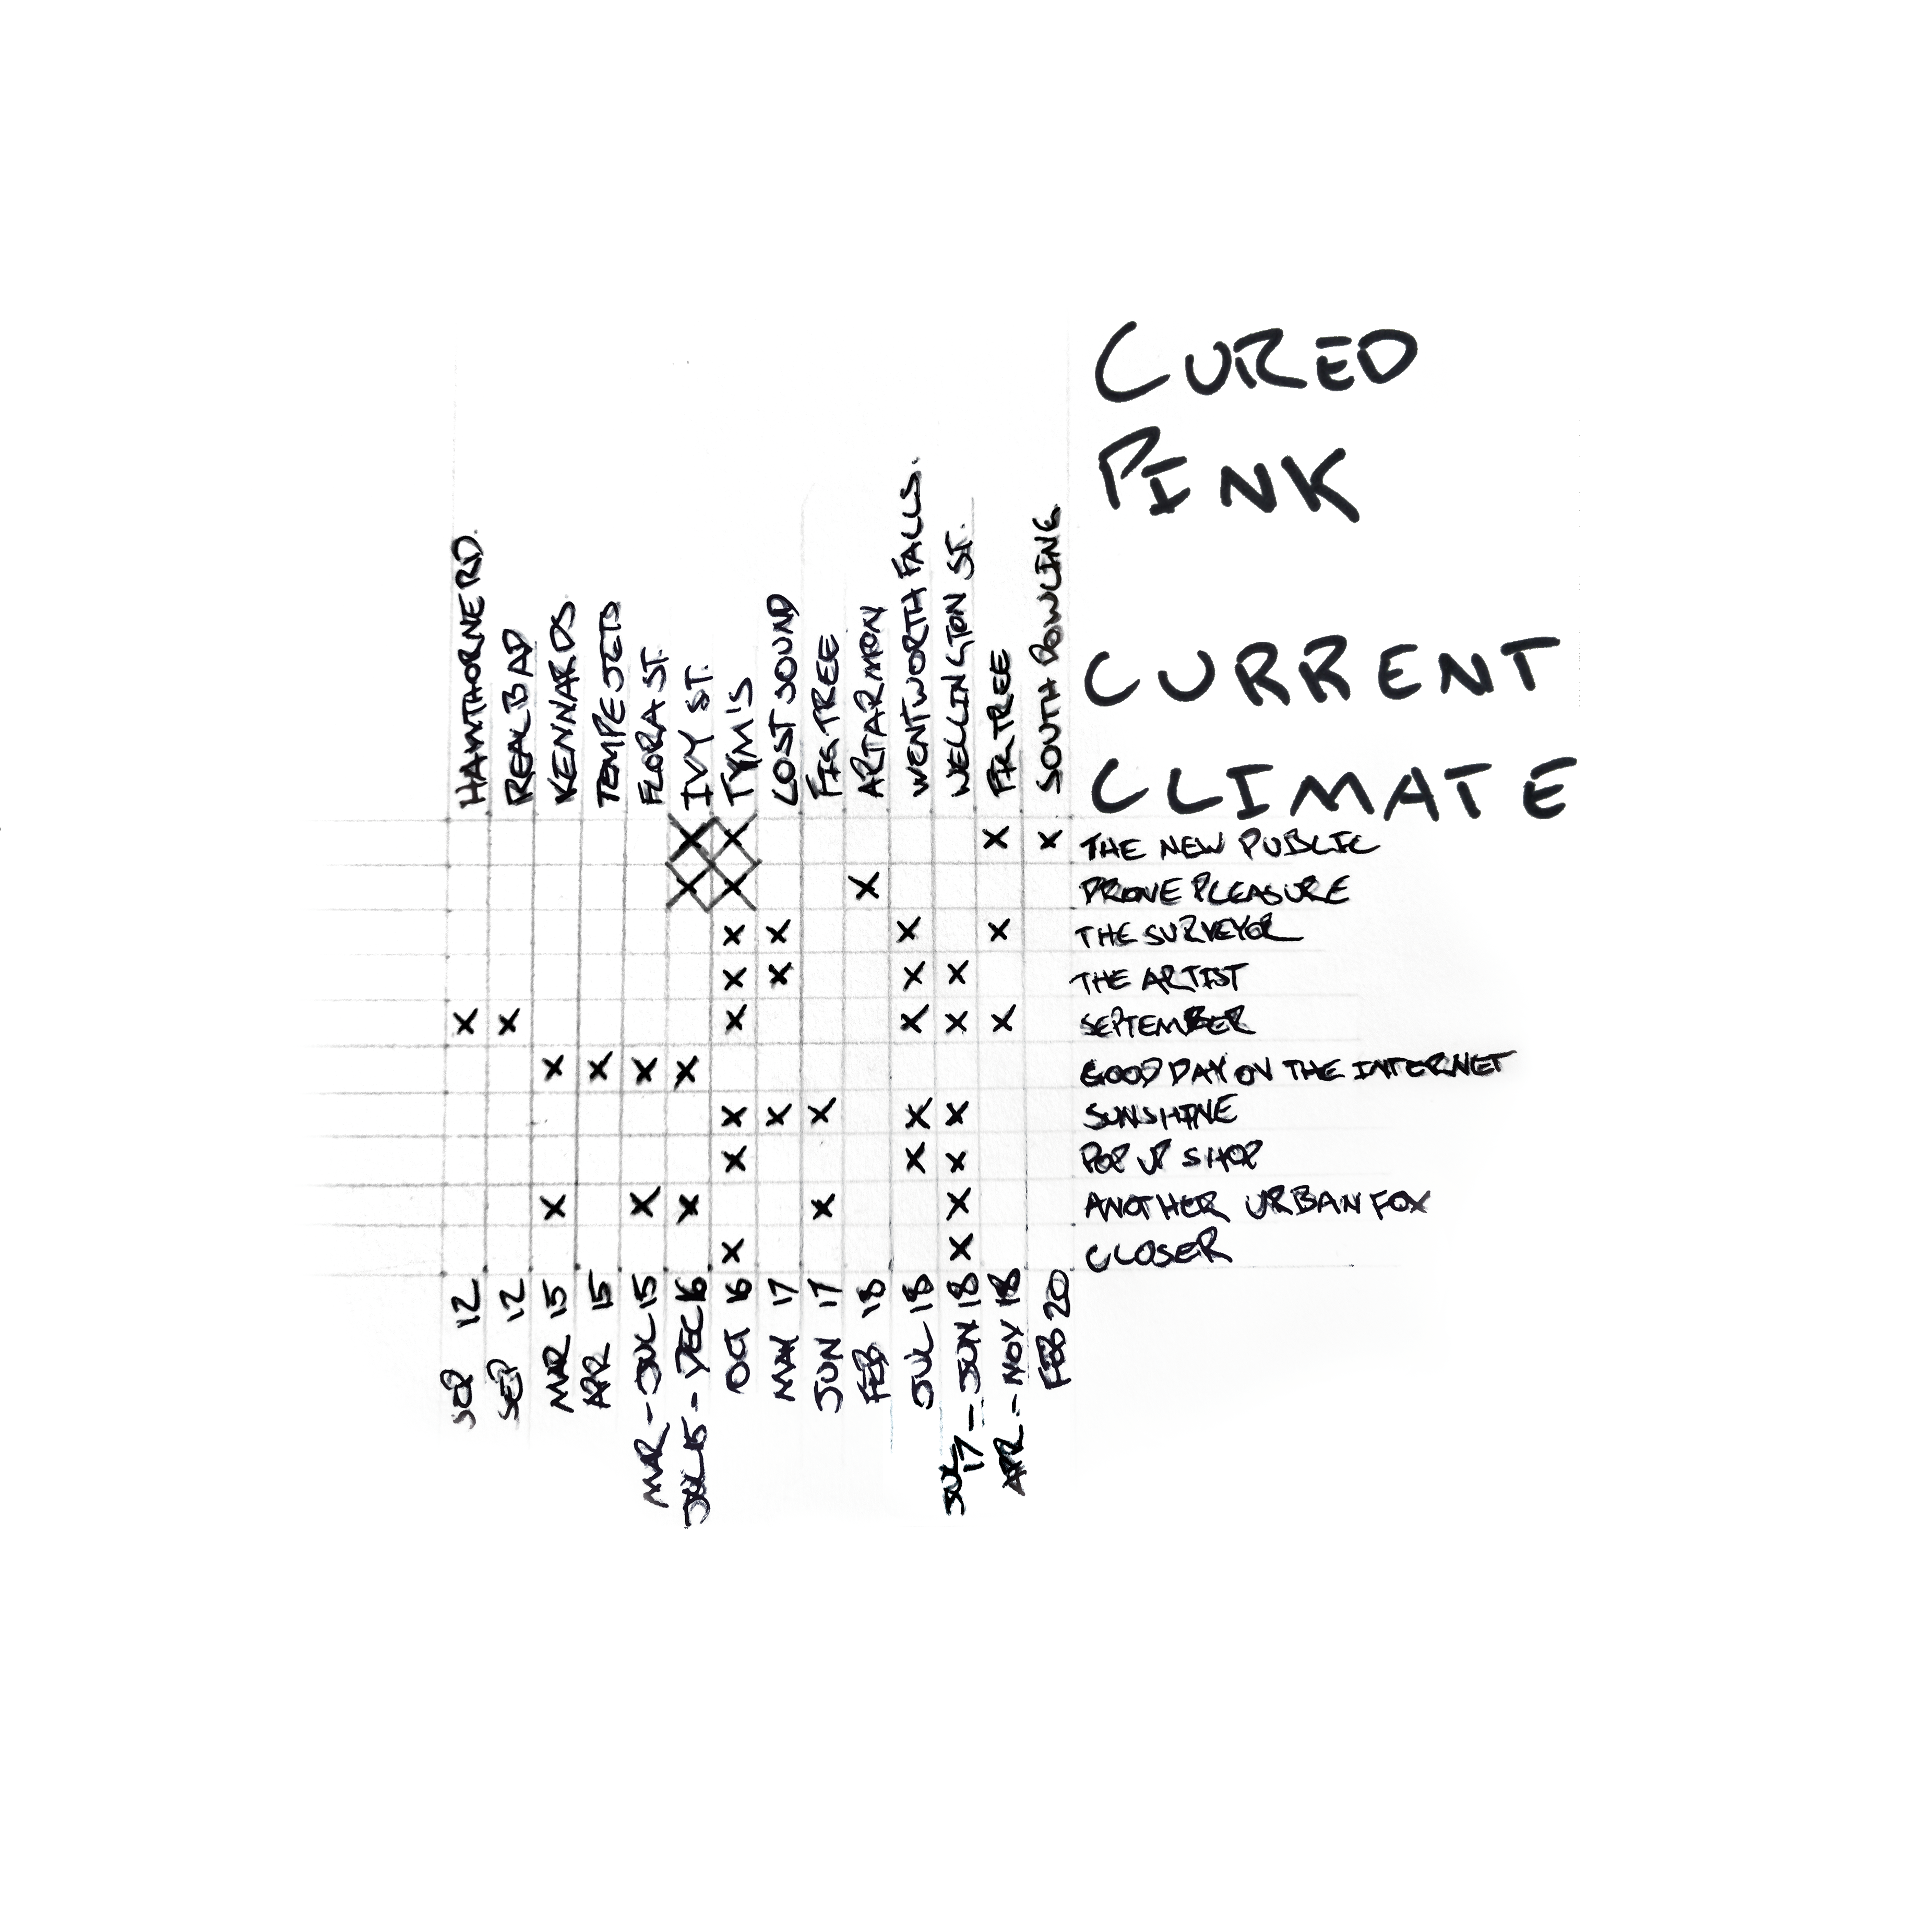 CURED
PINK
CURRENT
CLIMATE
HAWTHORNE RD.
REAL BAD
KENNARDS
TEMPE JETS
FLORA ST.
IVY ST.
TYM IS
LOST SOUND
FIG TREE
ARTARMON
WENTWORTH FALLS.
WELLINGTON ST.
FIR TREE
SOUTH DOWLING
X X X X THE NEW PUBLIC
X X X PROVE PLEASURE
X X X X THE SURVEYOR
X X X X THE ARTIST
X X X X X X SEPTEMBER
X X X X GOOD DAY ON THE INTERNET
X X X X X SUNSHINE
X X X POP UP SHOP
X X X X X ANOTHER URBAN FOX
X X CLOSER
SEP 12
SEP 12
MAR 15
APR 15
MAR - JUL 15
JUL 15 - DEC 16
OCT 16
MAY 17
JUN 17
FEB 18
JUL 18
JUL 17 - JUN 18
APR - NOV 18
FEB 20